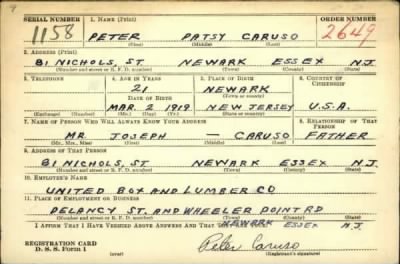 SERIAL NUMBER 1. NAME (Print) ORDER NUMBER
1158 PETER PATSY CARUSO 2649
(First) (Middle) (Last)
2. ADDRESS (Print)
81 NICHOLS, ST NEWARK ESSEX N.J.
(Number and street or R. F. D. number) (Town) (County) (State)
3. TELEPHONE 4. AGE IN YEARS 5. PLACE OF BIRTH 6. COUNTRY OF CITIZENSHIP
21 NEWARK
DATE OF BIRTH (Town or county)
MAR. 2 1919 NEW JERSEY U.S.A.
(Exchange) (Number) (Mo.) (Day) (Yr.) (State or country)
7. NAME OF PERSON WHO WILL ALWAYS KNOW YOUR ADDRESS 8. RELATIONSHIP OF THAT PERSON
MR. JOSEPH — CARUSO FATHER
(Mr., Mrs., Miss) (First) (Middle) (Last)
9. ADDRESS OF THAT PERSON
81 NICHOLS, ST NEWARK ESSEX N.J.
(Number and street or R. F. D. number) (Town) (County) (State)
10. EMPLOYER'S NAME
UNITED BOX AND LUMBER CO
11. PLACE OF EMPLOYMENT OR BUSINESS
DELANCY ST. AND WHEELER POINT RD
(Number and street or R. F. D. number) (Town) (County) (State)
NEWARK ESSEX N.J.
I AFFIRM THAT I HAVE VERIFIED ABOVE ANSWERS AND THAT
REGISTRATION CARD
D. S. S. Form 1 (over) Peter Caruso
(Registrant's signature)